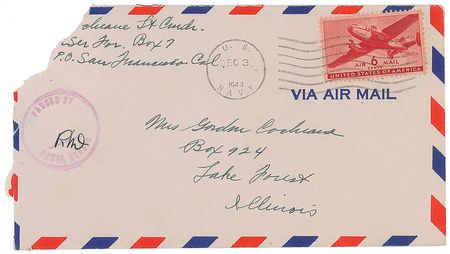 chrane Lt Cmdr.
Ser For. Box 7
P.O. San Francisco Cal
U.S.
DEC 3
1943
NAVY
AIR 6 MAIL
CENTS
UNITED STATES OF AMERICA
VIA AIR MAIL
PASSED BY
NAVAL CENSOR
Mrs Gordon Cochrane
Box 924
Lake Forest
Illinois